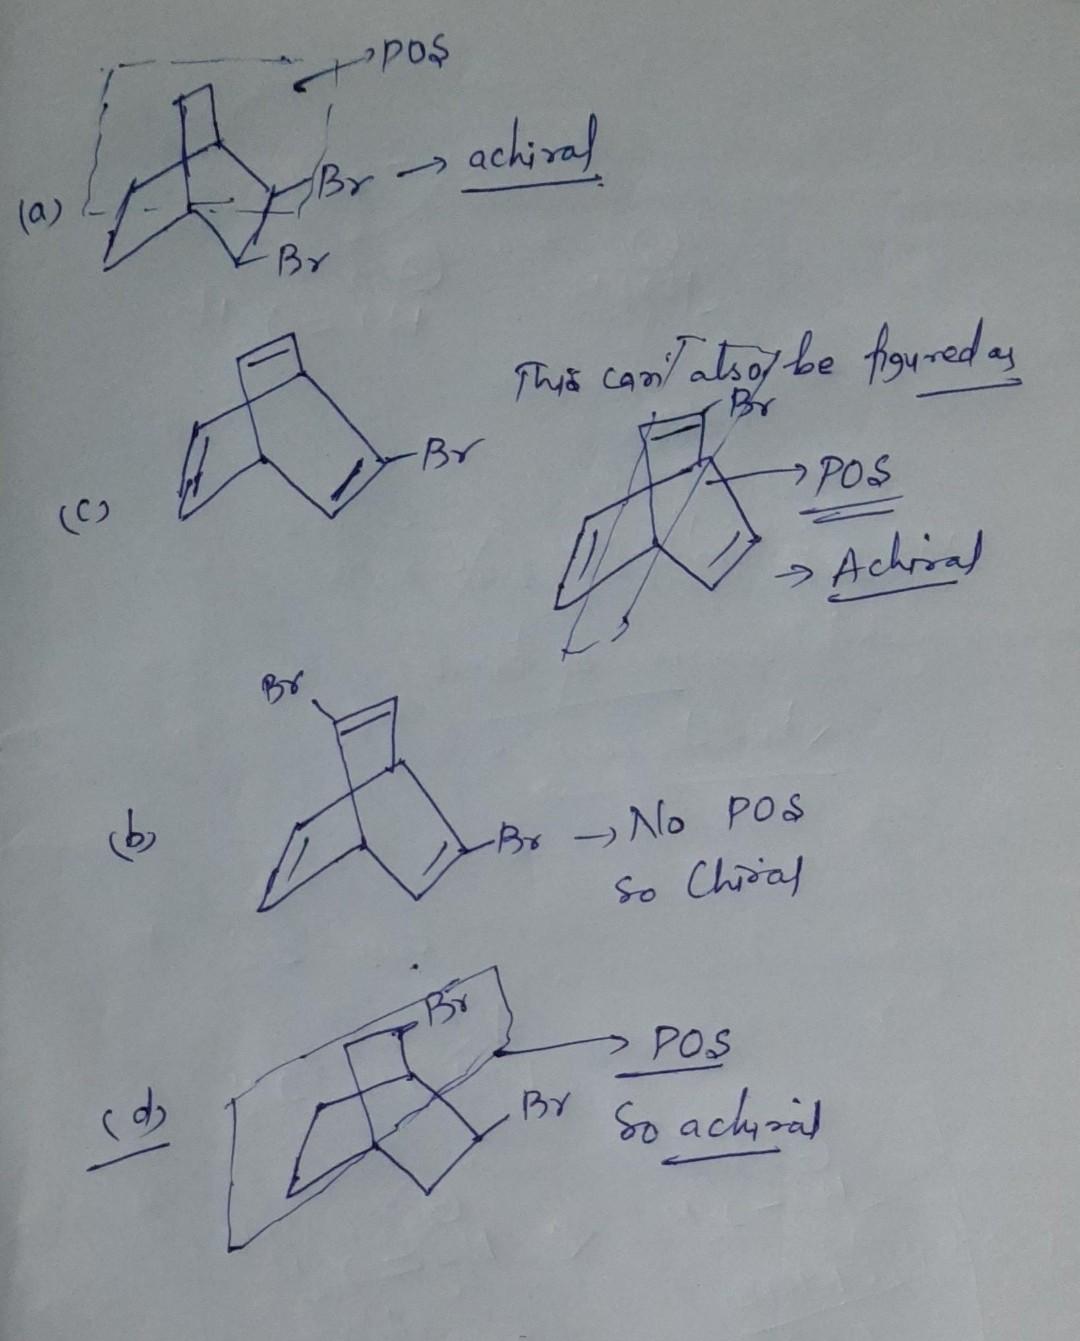 → POS
(a)
Br → achiral
Br
This can also be figured as
Br
(c)
Br
→ POS
→ Achiral
Br
(b)
Br → No POS
So Chiral
Br
→ POS
(d)
Br
So achiral